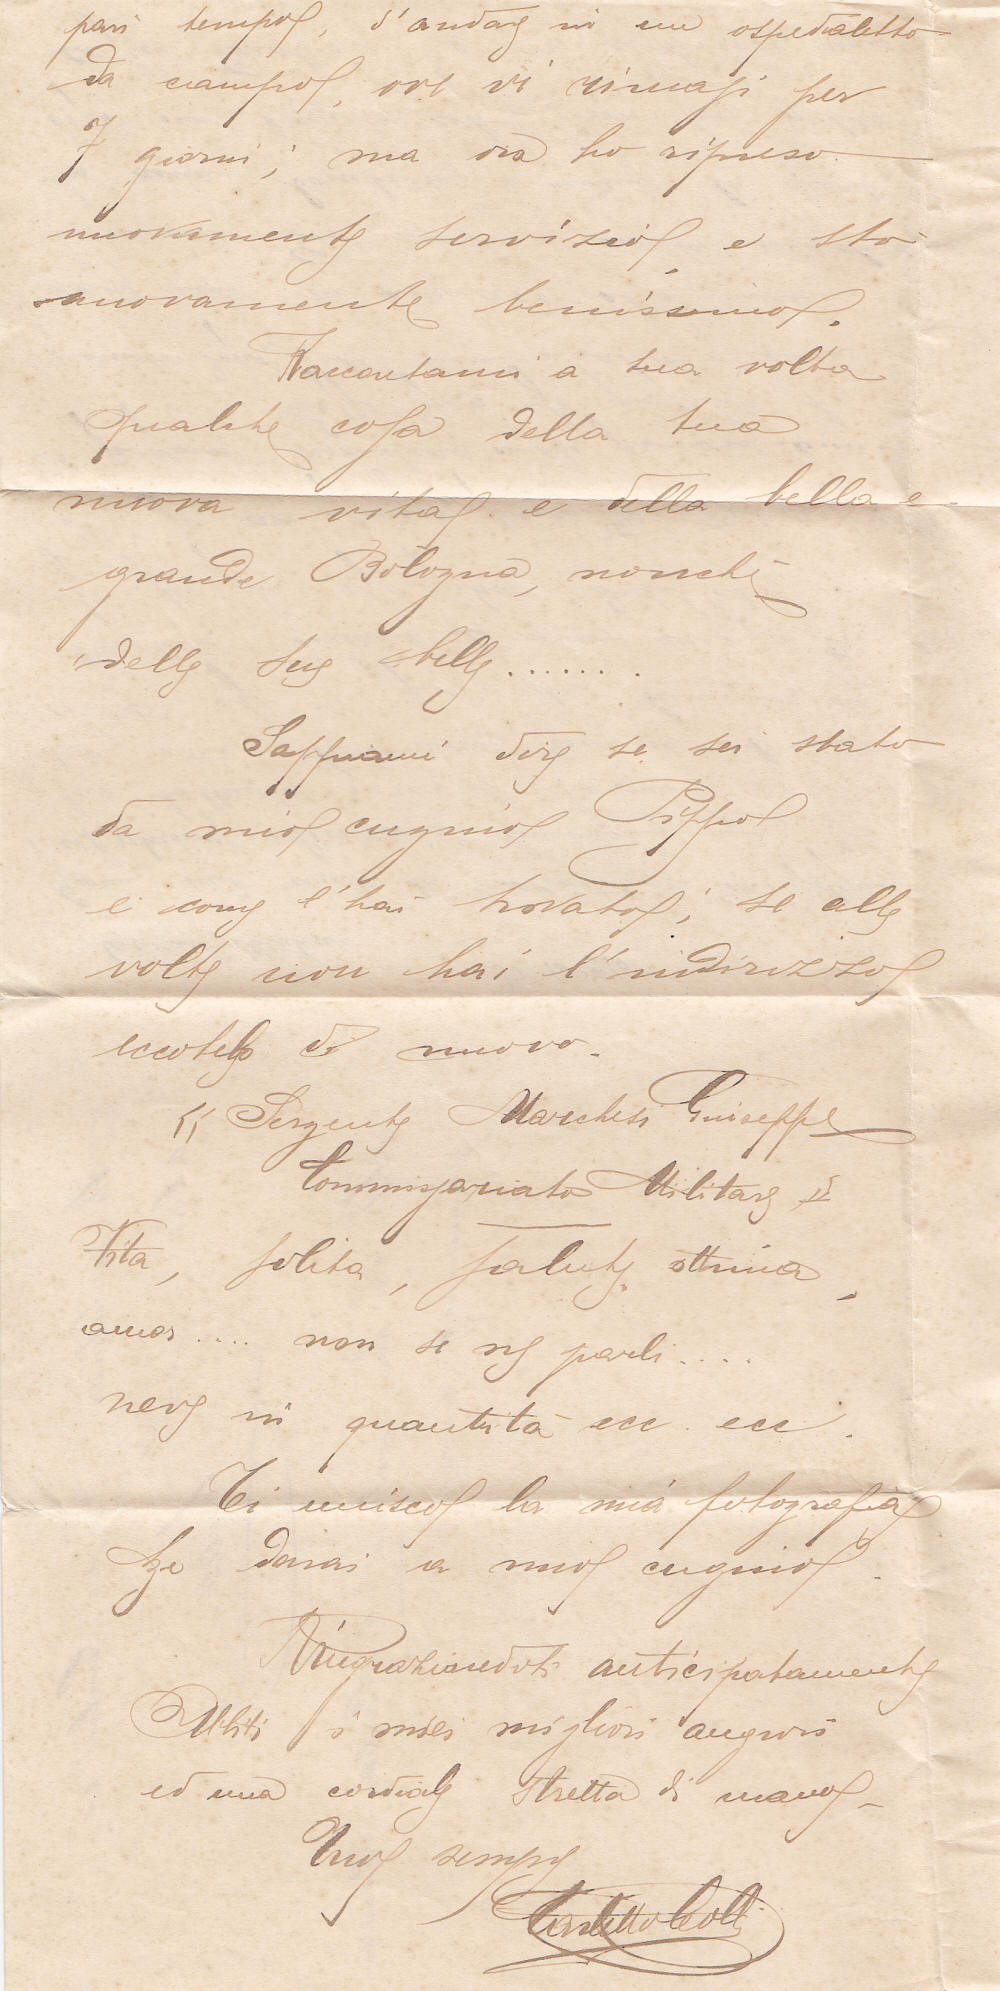 pari tempo, d'andare in un ospedaletto
da campo, ove vi rimasi per
7 giorni; ma ora ho ripreso
nuovamente servizio, e sto
nuovamente benissimo.
Raccontami a tua volta
qualche cosa della tua
nuova vita e della bella e
grande Bologna, nonchè
delle sue belle.......
Sappiami dire se sei stato
da mio cugino Pippo
e come l'hai trovato; se alle
volte non hai l'indirizzo
eccotelo di nuovo.
" Sergente Marchesi Giuseppe
Commissariato Militare "
Vita, solita, salute ottima,
amor .... non se ne parli ....
neve in quantità ecc. ecc.
Ti unisco la mia fotografia
che darai a mio cugino.
Ringraziandoti anticipatamente
abbiti i miei migliori auguri
ed una cordiale stretta di mano
Tuo sempre